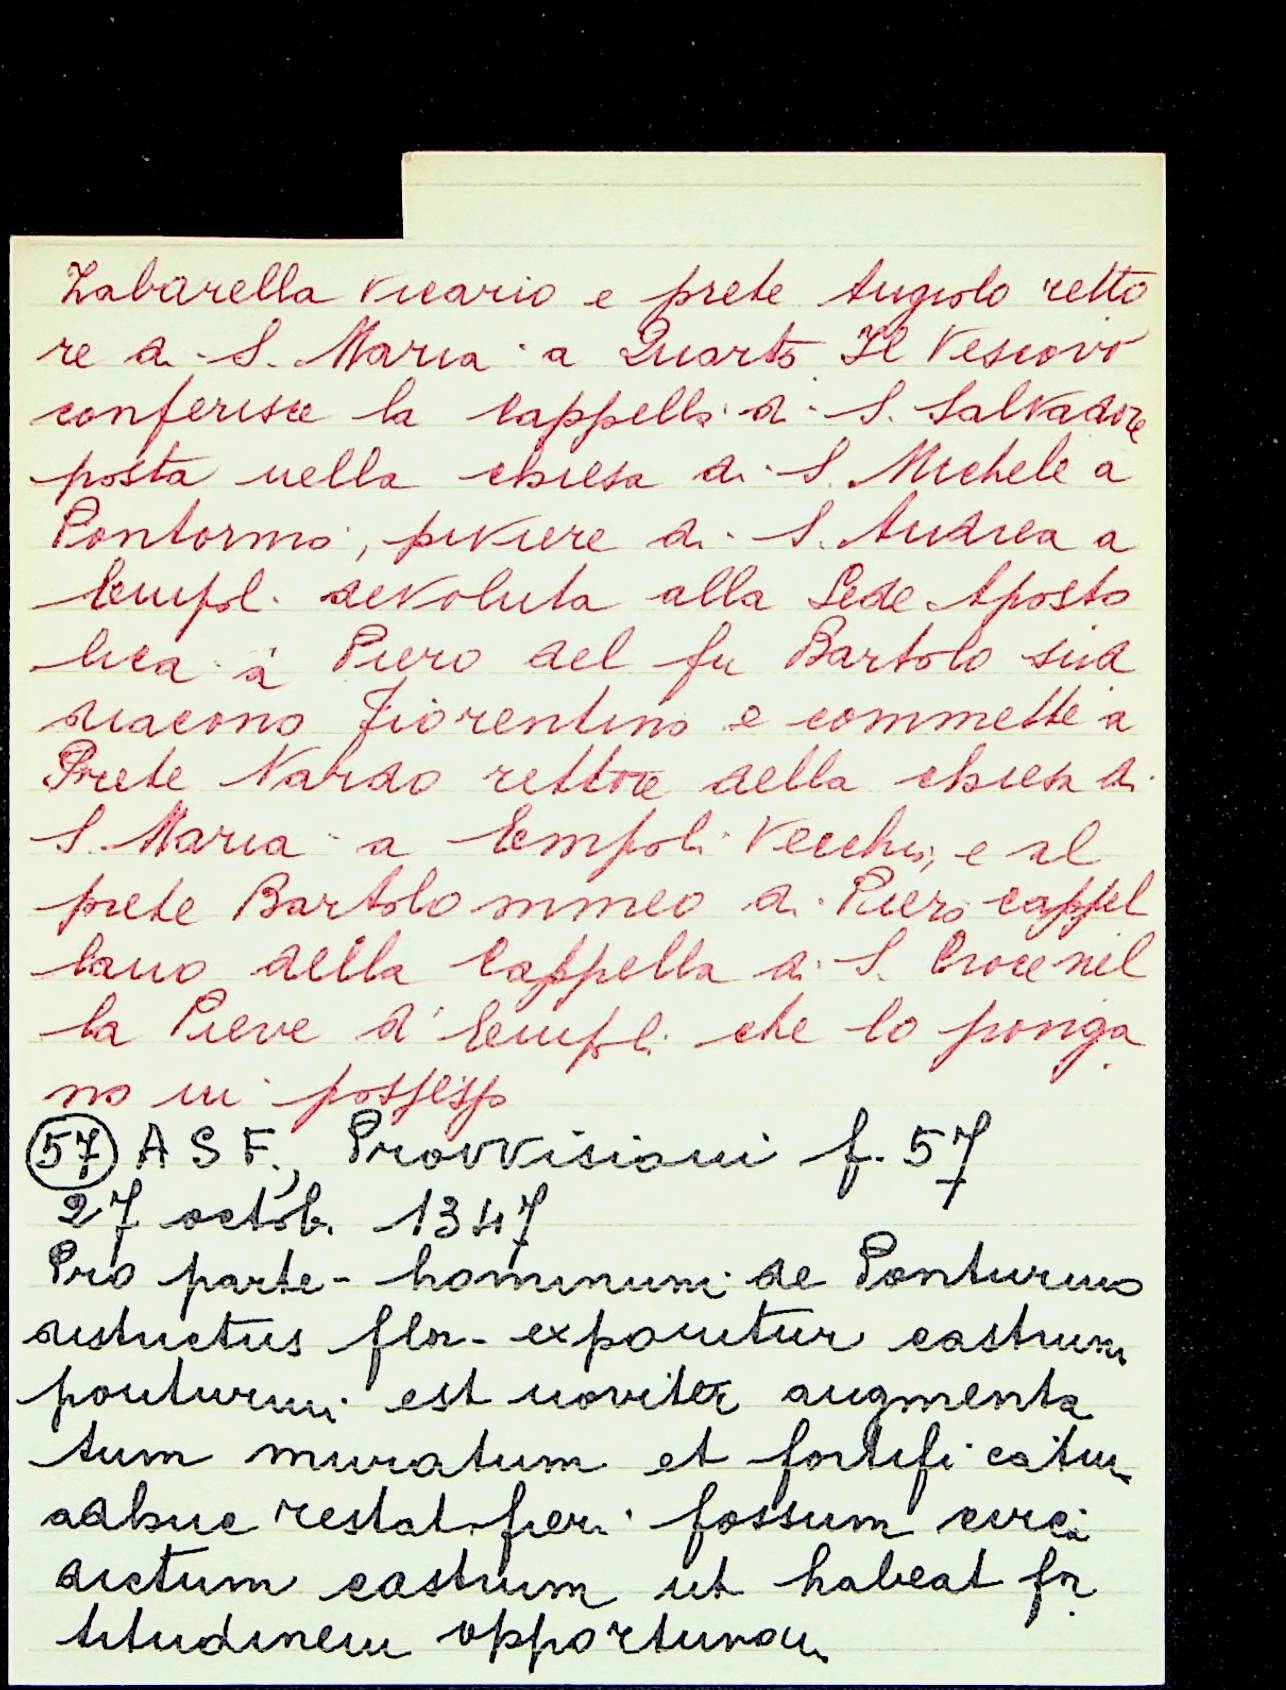 Zabarella Vicario e prete Angiolo retto
re di S. Maria a Quarto Il Vescovo
conferisce la Cappella di S. Salvadore
posta nella chiesa di S. Michele a
Pontormo, piviere di S. Andrea a
Empoli devoluta alla Sede Aposto
lica a Piero del fu Bartolo sud
diacono Fiorentino e commette a
Prete Nardo rettore della chiesa di
S. Maria a Empoli Vecchio, e al
prete Bartolommeo di Piero cappel
lano della Cappella di S. Croce nel
la Pieve d'Empoli che lo ponga
no in possesso
57 A S F., Provvisioni f. 57
27 octob. 1347
Pro parte - hominum de Ponturmo
districtus flor - exponitur castrum
ponturmi est noviter augmenta
tum muratum et fortificatum
adhuc restat fieri fossum circa
dictum castrum ut habeat for
titudinem opportunam